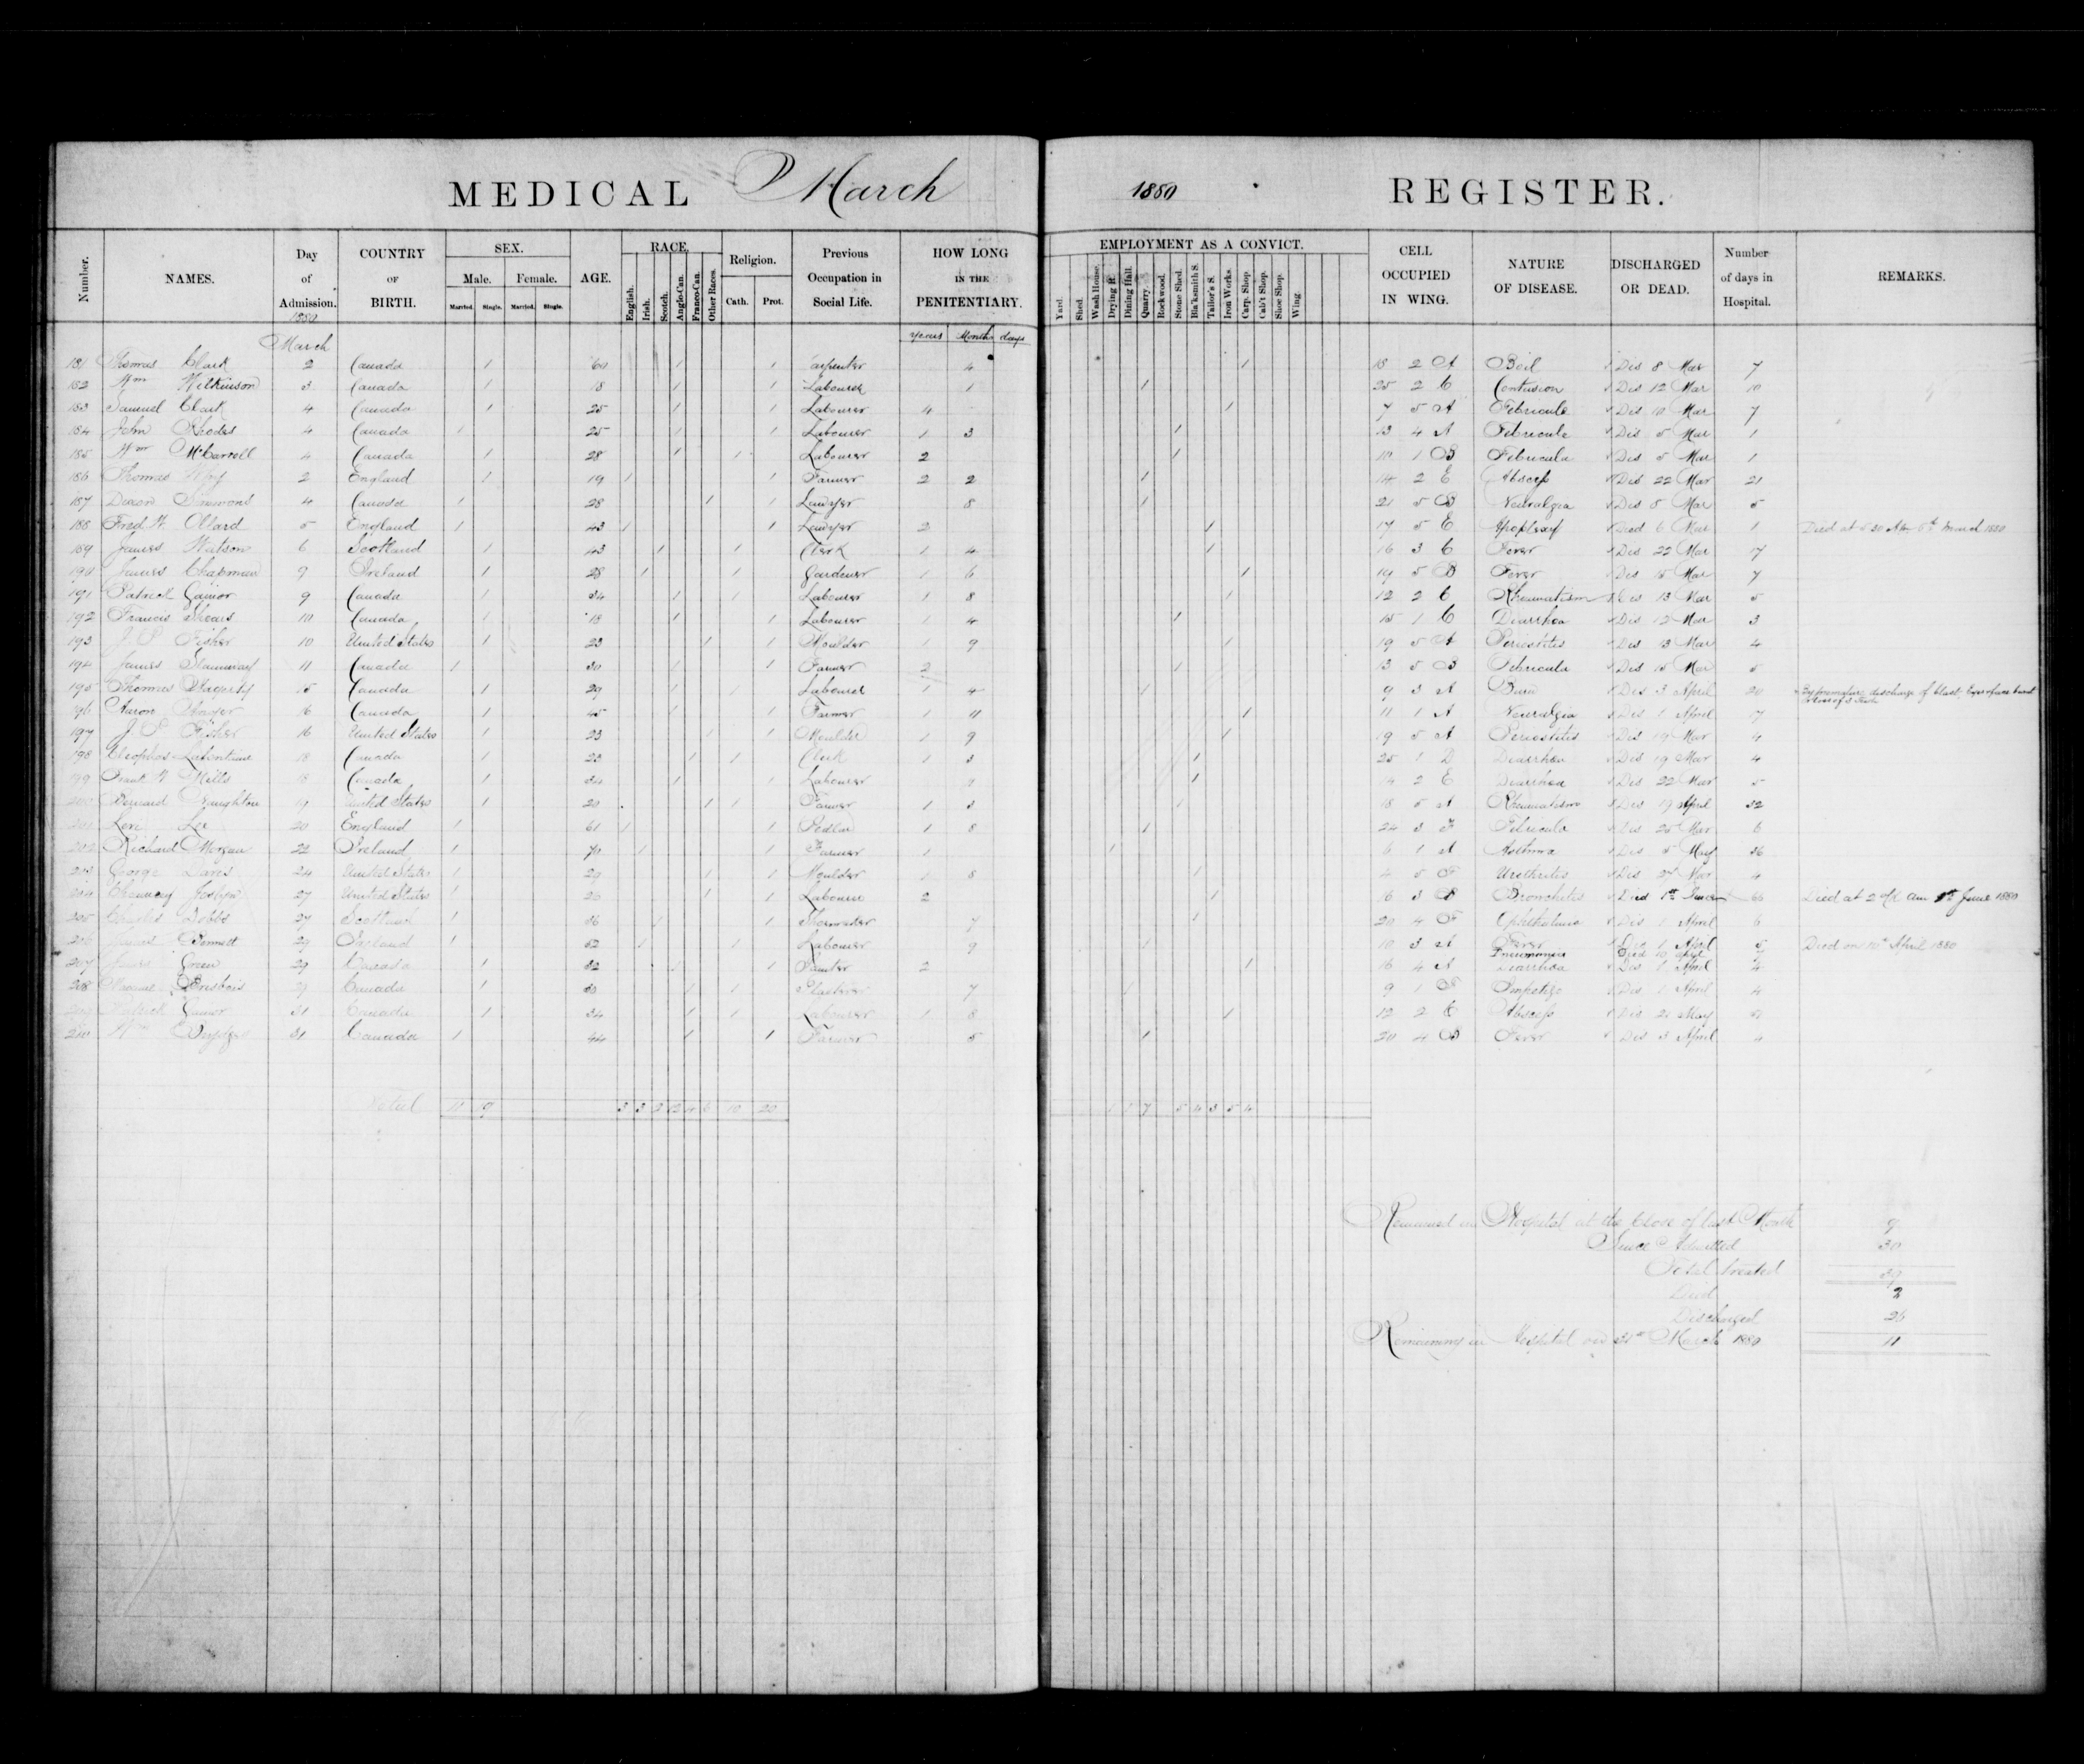 MEDICAL March 1880 REGISTER.
Number. NAMES. Day of Admission. COUNTRY OF BIRTH. SEX. Male. Female. Married. Single. Married. Single. AGE. RACE. English. Irish. Scotch. Anglo-Can. Franco-Can. Other Races. Religion. Cath. Prot. Previous Occupation in Social Life. HOW LONG IN THE PENITENTIARY. EMPLOYMENT AS A CONVICT. Yard. Shed. Wash House. Drying R. Dining Hall. Quarry. Rockwood. Stone Shed. Bla'ksmith S. Tailor's S. Iron Works. Carp. Shop. Cab't Shop. Shoe Shop. Wing CELL OCCUPIED IN WING. NATURE OF DISEASE. DISCHARGED OR DEAD. Number of days in Hospital. REMARKS.
1880
March Years Months days
181 Thomas Clark 2 Canada 1 60 1 1 Carpenter 4 1 18 2 A Boil Dis 8 Mar 7
182 Wm Wilkinson 3 Canada 1 18 1 1 Labourer 1 1 25 2 C Contusion Dis 12 Mar 10
183 Samuel Clark 4 Canada 1 25 1 1 Labourer 4 1 7 5 A Febricula Dis 10 Mar 7
184 John Rhodes 4 Canada 1 25 1 1 Labourer 1 3 1 13 4 A Febricula Dis 5 Mar 1
185 Wm McCarroll 4 Canada 1 28 1 1 Labourer 2 1 10 1 B Febricula Dis 5 Mar 1
186 Thomas 2 England 1 19 1 1 Farmer 2 2 1 14 2 E Abscess Dis 22 Mar 21
187 Dixon Simmons 4 Canada 1 28 1 1 Lawyer 8 1 21 5 B Neuralgia Dis 8 Mar 5
188 Fred W. Allard 5 England 1 43 1 1 Lawyer 2 1 17 5 E Apoplexy Died 6 Mar 1 Died at 5 30 6th March 1880
189 James Watson 6 Scotland 1 43 1 1 Clerk 1 4 1 16 3 C Fever Dis 22 Mar 17
190 James Chapman 9 Ireland 1 28 1 1 Gardener 1 6 1 19 5 B Fever Dis 15 Mar 7
191 Patrick Gainor 9 Canada 1 34 1 1 Labourer 1 8 1 12 2 C Rheumatism Dis 13 Mar 5
192 Francis Shears 10 Canada 1 18 1 1 Labourer 1 4 1 15 1 C Diarrhea Dis 12 Mar 3
193 J. P. Fisher 10 United States 1 23 1 1 Moulder 1 9 1 19 5 A Periostitis Dis 13 Mar 4
194 James 11 Canada 1 30 1 1 Farmer 2 1 13 5 B Febricula Dis 15 Mar 5
195 Thomas Hagerty 15 Canada 1 29 1 1 Labourer 1 4 1 9 3 A Burn Dis 3 April 20 By premature discharge of blast
196 Aaron 16 Canada 1 45 1 1 Farmer 1 11 1 11 1 A Neuralgia Dis 1 April 17
197 J. P. Fisher 16 United States 1 23 1 1 Moulder 1 9 1 19 5 A Periostitis Dis 19 Mar 4
198 Cleophas Lafontaine 18 Canada 1 23 1 1 Clerk 1 3 1 25 1 D Diarrhea Dis 19 Mar 4
199 Frank Mills 18 Canada 1 34 1 1 Labourer 1 14 2 E Diarrhea Dis 22 Mar 5
200 Bernard Naughton 19 United States 1 20 1 1 Farmer 1 3 1 18 5 A Rheumatism Dis 19 April 32
201 Levi Lee 20 England 1 61 1 1 Pedlar 1 8 1 24 3 F Febricula Dis 25 Mar 6
202 Richard Morgan 22 Ireland 1 70 1 1 Farmer 1 1 6 1 A Asthma Dis May 36
203 George Davis 24 United States 1 29 1 1 Moulder 8 1 4 5 F Urethritis Dis 27 Mar 4
204 Chauncey Joslyn 27 United States 1 26 1 1 Labourer 2 1 16 3 B Bronchitis Died 1st June 66 Died at 2 am 1st June 1880
205 Charles Dobbs 27 Scotland 1 36 1 1 Shoemaker 7 1 20 4 F Ophthalmia Dis 1 April 6
206 Bennett 29 Ireland 1 52 1 1 Labourer 9 1 10 3 A Fever Dis 1 April 5 Died on 10th April 1880
Pneumonia Died 10 April
207 James Green 29 Canada 1 32 1 1 Painter 2 1 16 4 A Diarrhea Dis 1 April 4
208 29 Canada 1 1 1 Plasterer 7 1 9 1 F Impetigo Dis 1 April 4
209 Patrick Gainor 31 Canada 1 34 1 1 Labourer 1 8 1 12 2 C Abscess Dis 21 May
210 Wm 31 Canada 1 44 1 1 Farmer 5 1 20 4 B Fever Dis 3 April 4
Total 11 19 3 3 2 12 4 6 10 20 1 1 7 5 4 3 5 4
Remained in Hospital at the Close of last Month 9
Since Admitted 30
Total treated 39
Died 2
Discharged 26
Remaining in Hospital on 31st March 1880 11